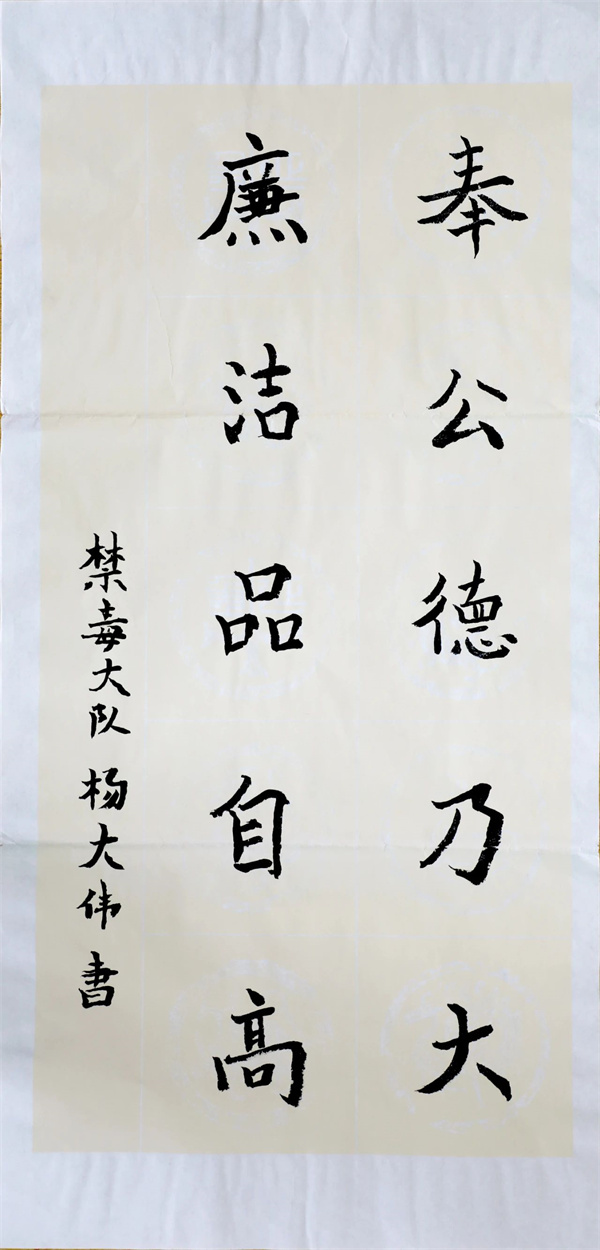 奉公德乃大
廉洁品自高
禁毒大队 杨大伟 書